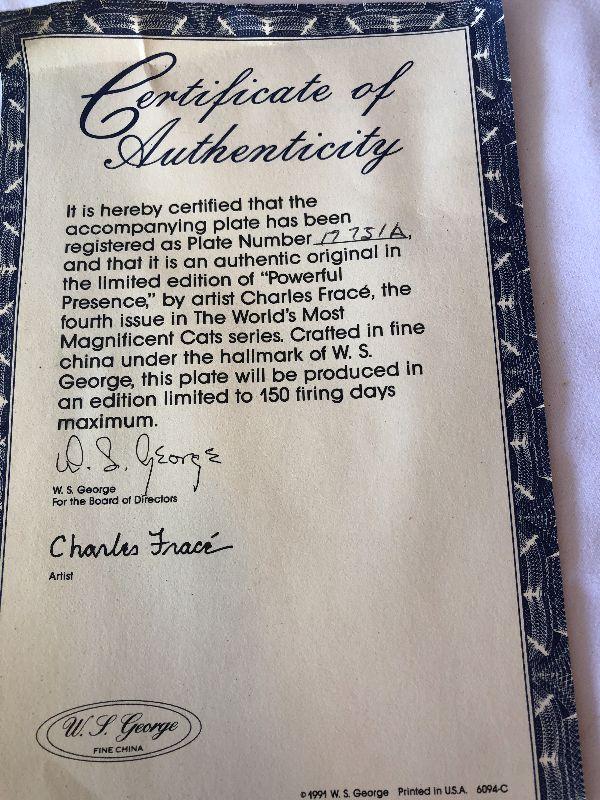 Certificate of
Authenticity
It is hereby certified that the
accompanying plate has been
registered as Plate Number 17 751A,
and that it is an authentic original in
the limited edition of "Powerful
Presence," by artist Charles Fracé, the
fourth issue in The World's Most
Magnificent Cats series. Crafted in fine
china under the hallmark of W. S.
George, this plate will be produced in
an edition limited to 150 firing days
maximum.
W. S. George
W. S. George
For the Board of Directors
Charles Fracé
Artist
W. S. George
FINE CHINA
© 1991 W. S. George Printed in U.S.A. 6094-C